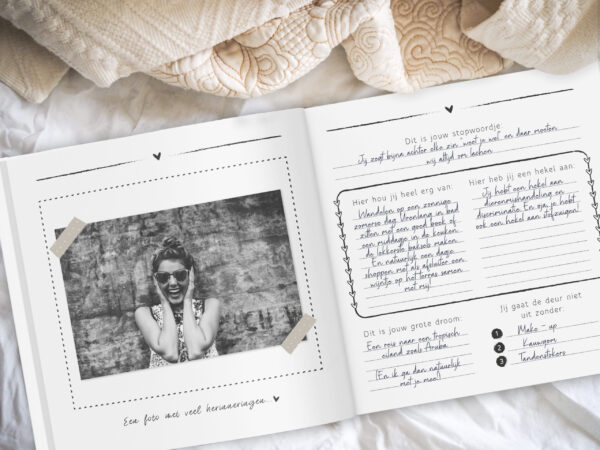 Een foto met veel herinneringen
Dit is jouw stopwoordje:
Jij zegt bijna achter elke zin 'weet je wel' en daar moeten
wij altijd om lachen
Hier hou jij heel erg van:
Wandelen op een zonnige
zomerse dag. Urenlang in bad
zitten met een goed boek of
een middagje in de keuken
de lekkerste baksels maken.
En natuurlijk een dagje
shoppen met als afsluiter een
wijntje op het terras samen
met mij!
Hier heb jij een hekel aan:
Jij hebt een hekel aan
dierenmishandeling en
discriminatie. En oja, je hebt
ook een hekel aan stofzuigen!
Dit is jouw grote droom:
Een reis naar een tropisch
eiland zoals Aruba.
(En ik ga dan natuurlijk
met je mee!)
Jij gaat de deur niet
uit zonder:
1 Make - up
2 Kauwgom
3 Tandenstokers